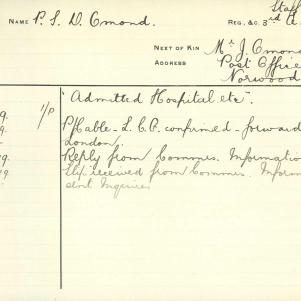 Staff
NAME P. S. D. Omond. REG. &C. 3rd A.
NEXT OF KIN Mr J. Omond
ADDRESS Post Office
Norwood
"Admitted Hospital etc".
9. 1/P P/Cable - L.C.P. confirmed - forward
London.
Reply from Commrs. Information
9. Slip received from Commrs. Inform
dent Inquiries